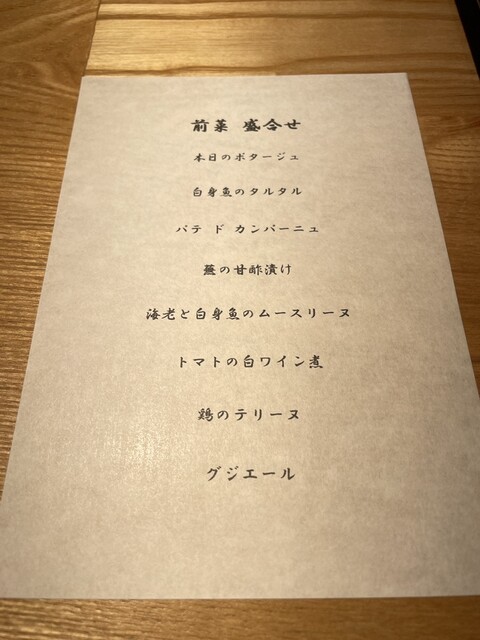 前菜 盛合せ
本日のポタージュ
白身魚のタルタル
パテ ド カンパーニュ
蕪の甘酢漬け
海老と白身魚のムースリーヌ
トマトの白ワイン煮
鶏のテリーヌ
グジエール